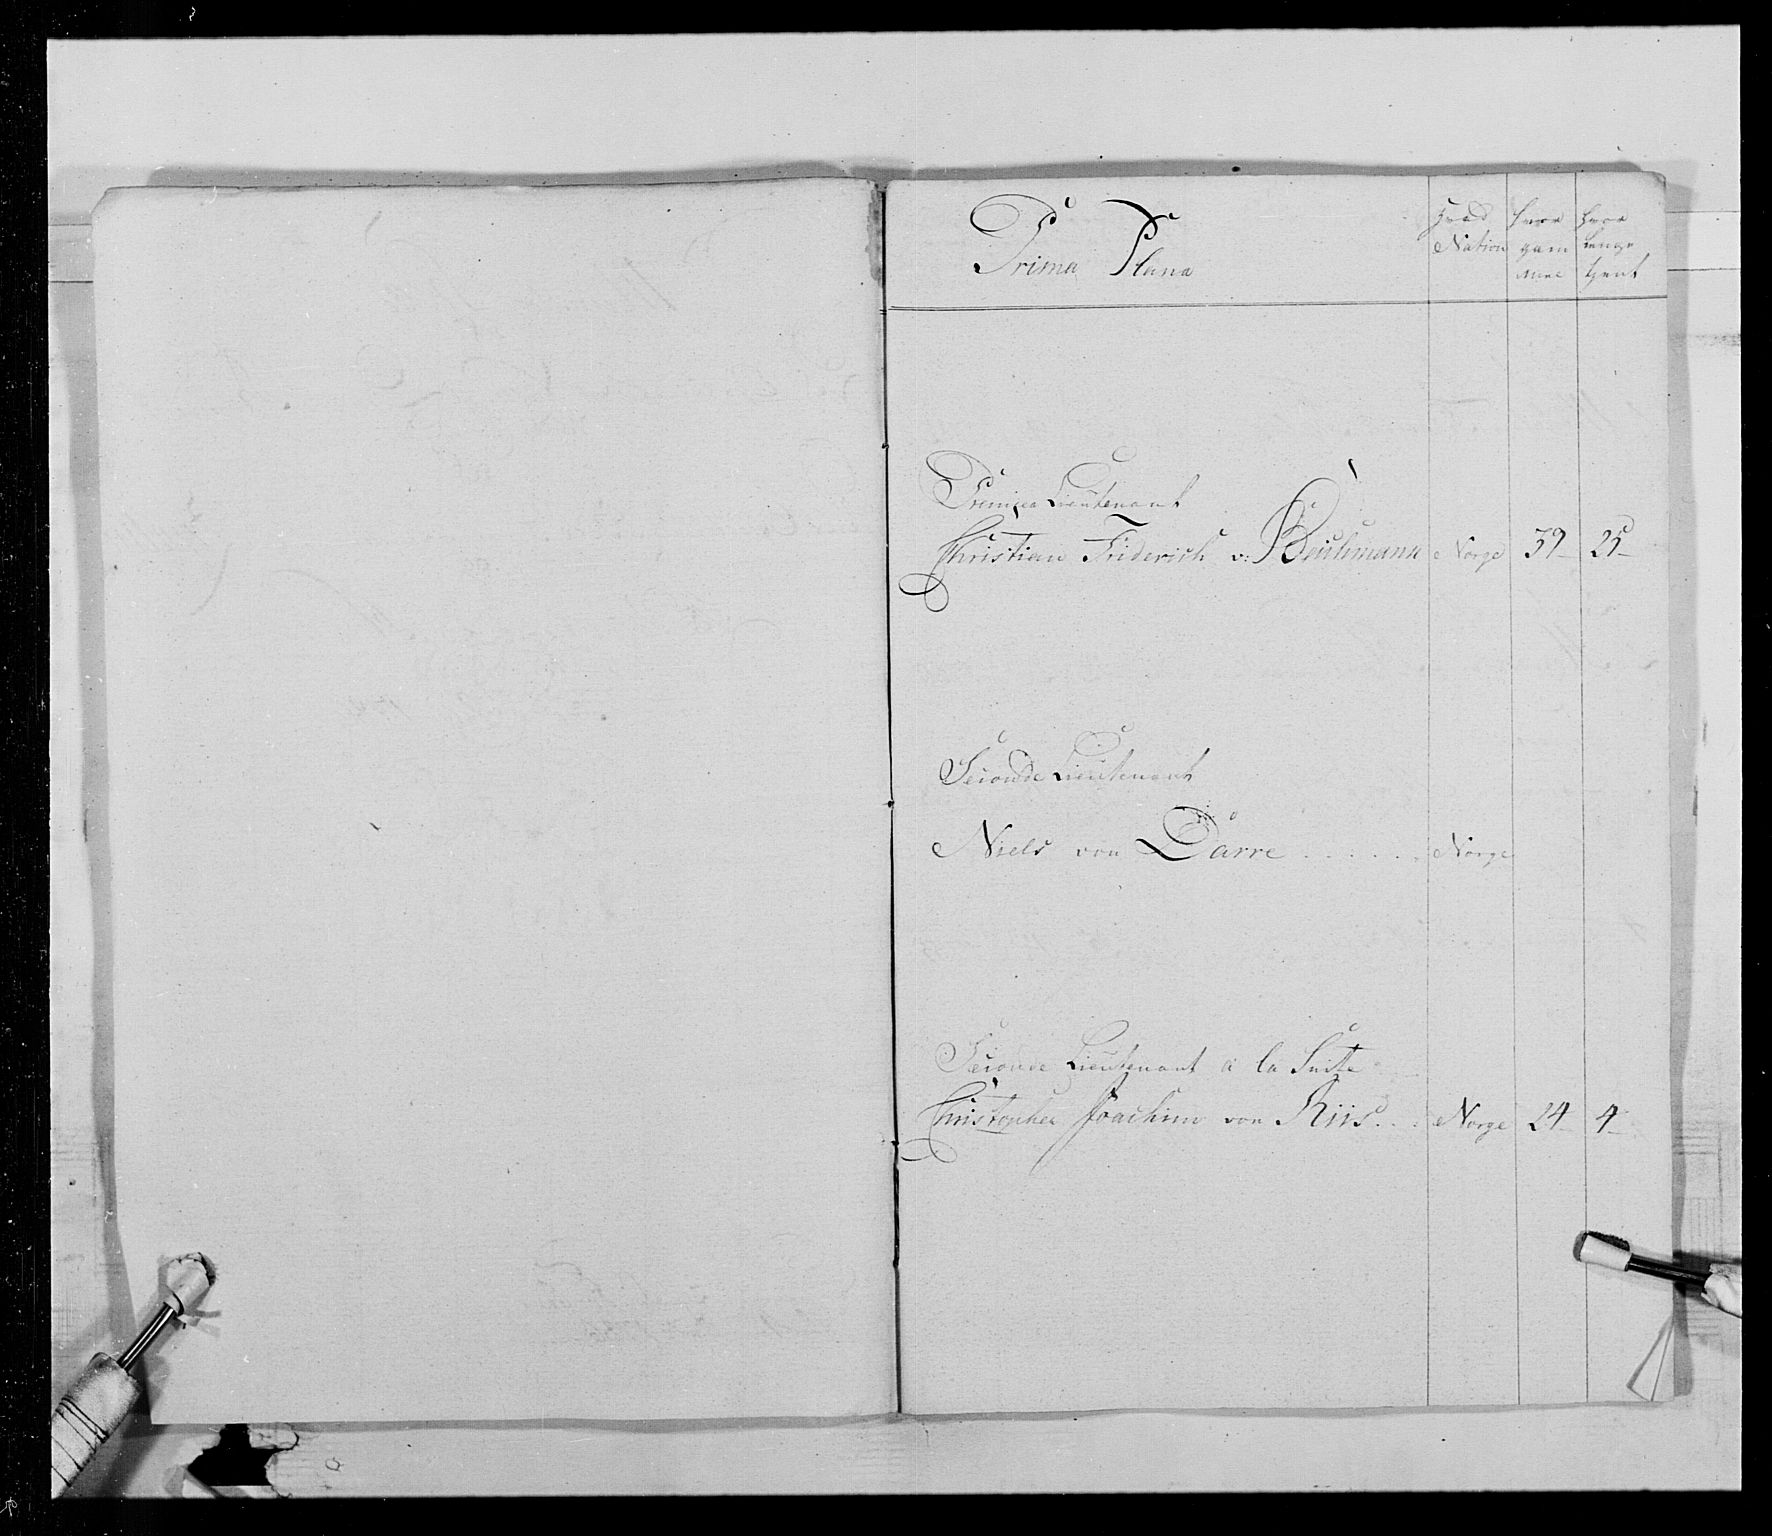 Prima Plana
Hvad Nation
hvor gam mel
hvor lenge tjent
Premier Lieutenant
Christian Friderich v: Norge 39 25
Seconde Lieutenant
Niels von Darre . . . . . . Norge
Seconde Lieutenant a la Suite
Christopher Joachim von Riis . . . Norge 24 4